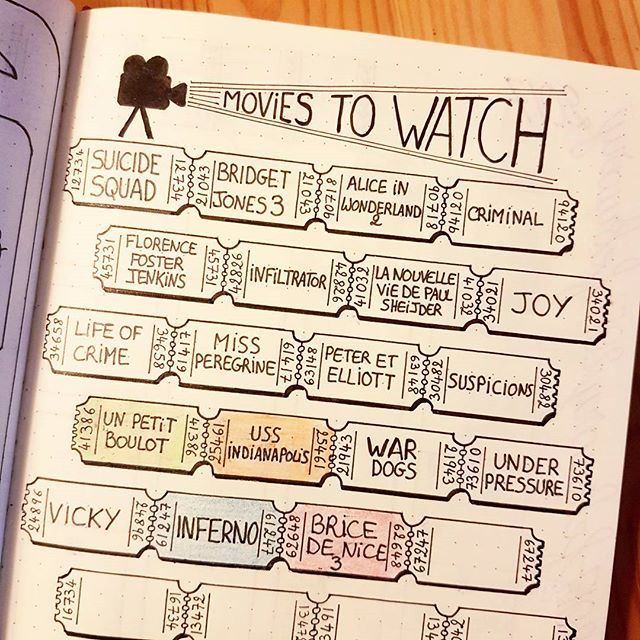 MOVIES TO WATCH
12734 SUICIDE SQUAD 12734
21043 BRIDGET JONES 3 21043
90718 ALICE IN WONDERLAND 2 90718
02146 CRIMINAL
45731 FLORENCE FOSTER JENKINS 45731
42826 INFILTRATOR 42826
LA NOUVELLE VIE DE PAUL SHEIJDER
JOY 34021
34658 LIFE OF CRIME 34658
MISS PEREGRINE 61417
63148 PETER ET ELLIOTT 63148
28403 SUSPICIONS 30482
41386 UN PETIT BOULOT 41386
25461 USS INDIANAPOLIS 25461
21943 WAR DOGS 21943
73610 UNDER PRESSURE 73610
24896 VICKY 24896
INFERNO
62648 BRICE DE NICE 3 62648
67247
16734 16734
27441
13474